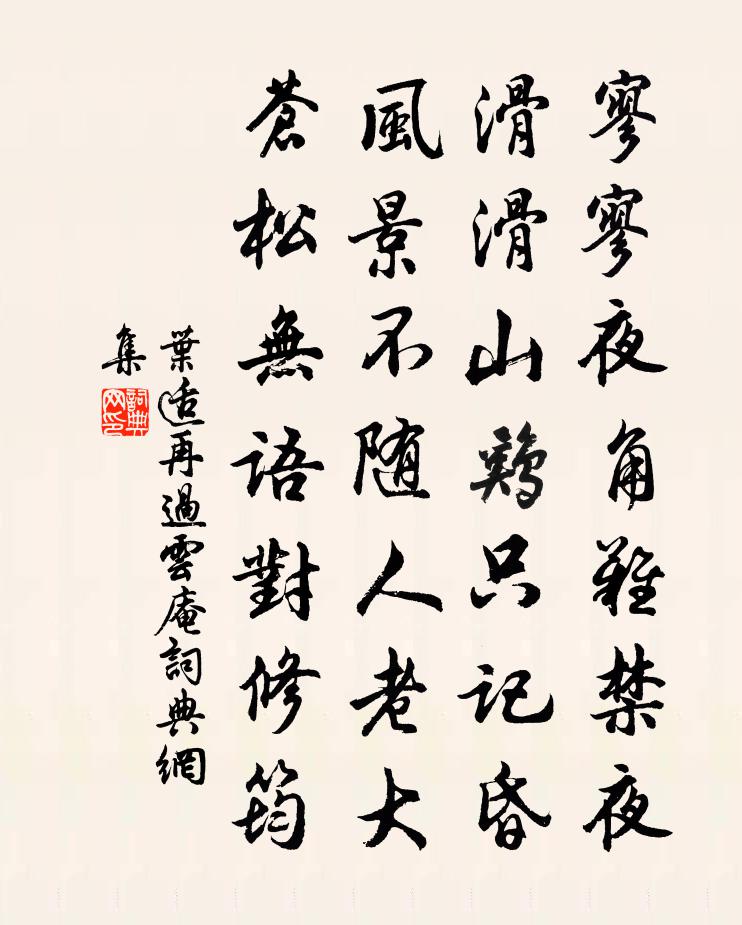 寥寥夜角難禁夜
滑滑山鷄只記昏
風景不随人老大
蒼松無語對修筠
葉适再過雲庵詞典網
集
詞典
网印